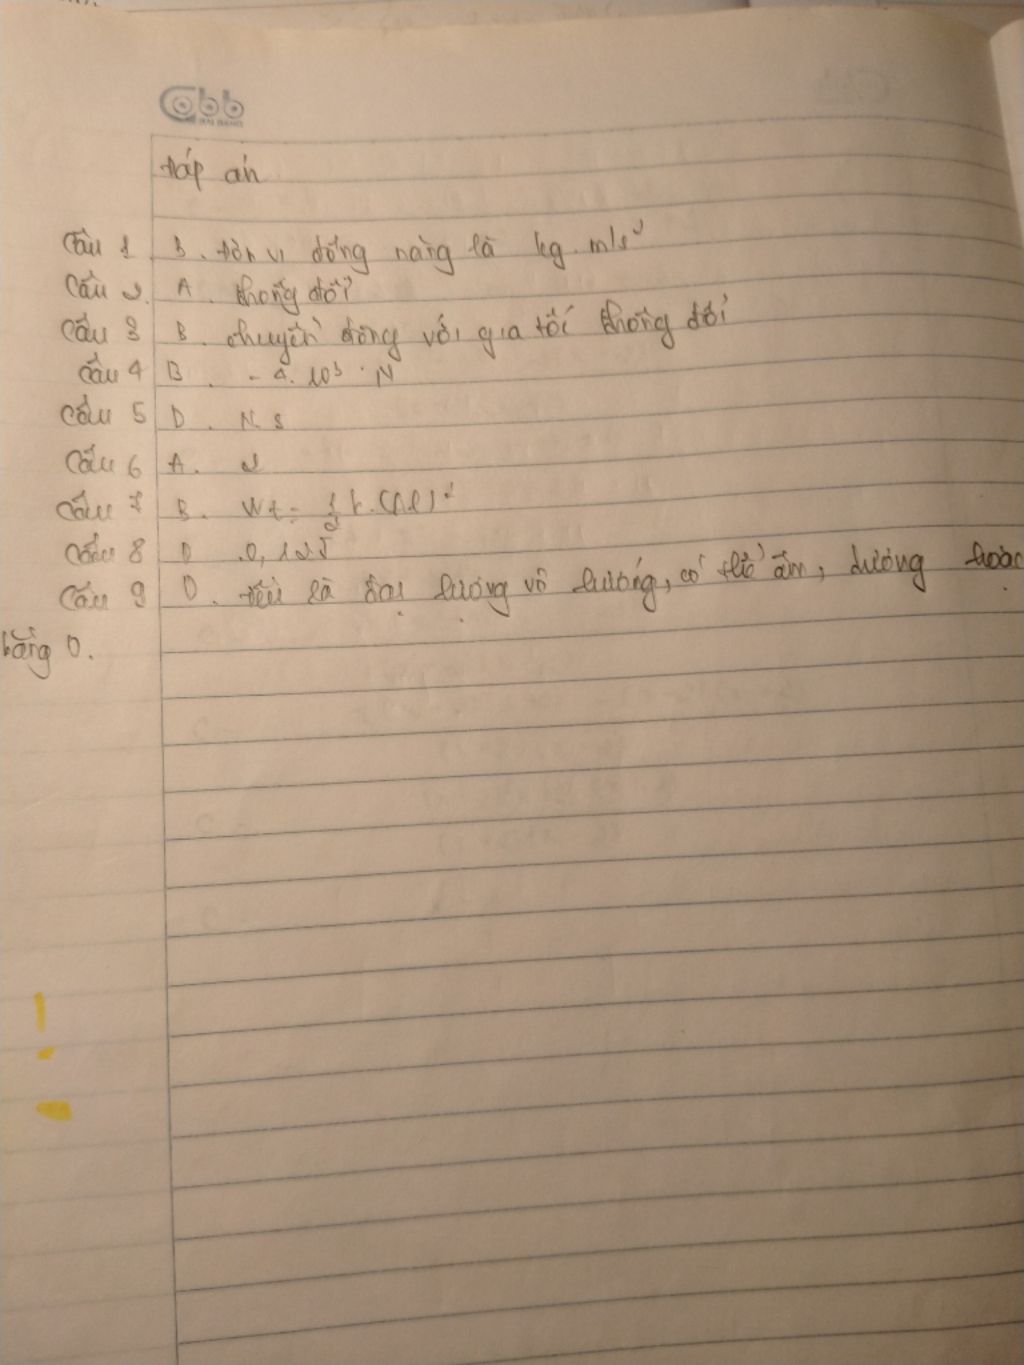 Cobb
HẢI DƯƠNG
Đáp án
Câu 1 B. Đơn vị động năng là kg.m/s²
Câu 2. A. không đổi
Câu 3 B. chuyển động với gia tốc không đổi
Câu 4 B. - 4.10³.N
Câu 5 D. N.s
Câu 6 A. 2
Câu 7 B. Wt = 1/2 k.(Δl)²
Câu 8 D. 0,12J
Câu 9 D. đều là đại lượng vô hướng, có thể âm, dương hoặc
bằng 0.